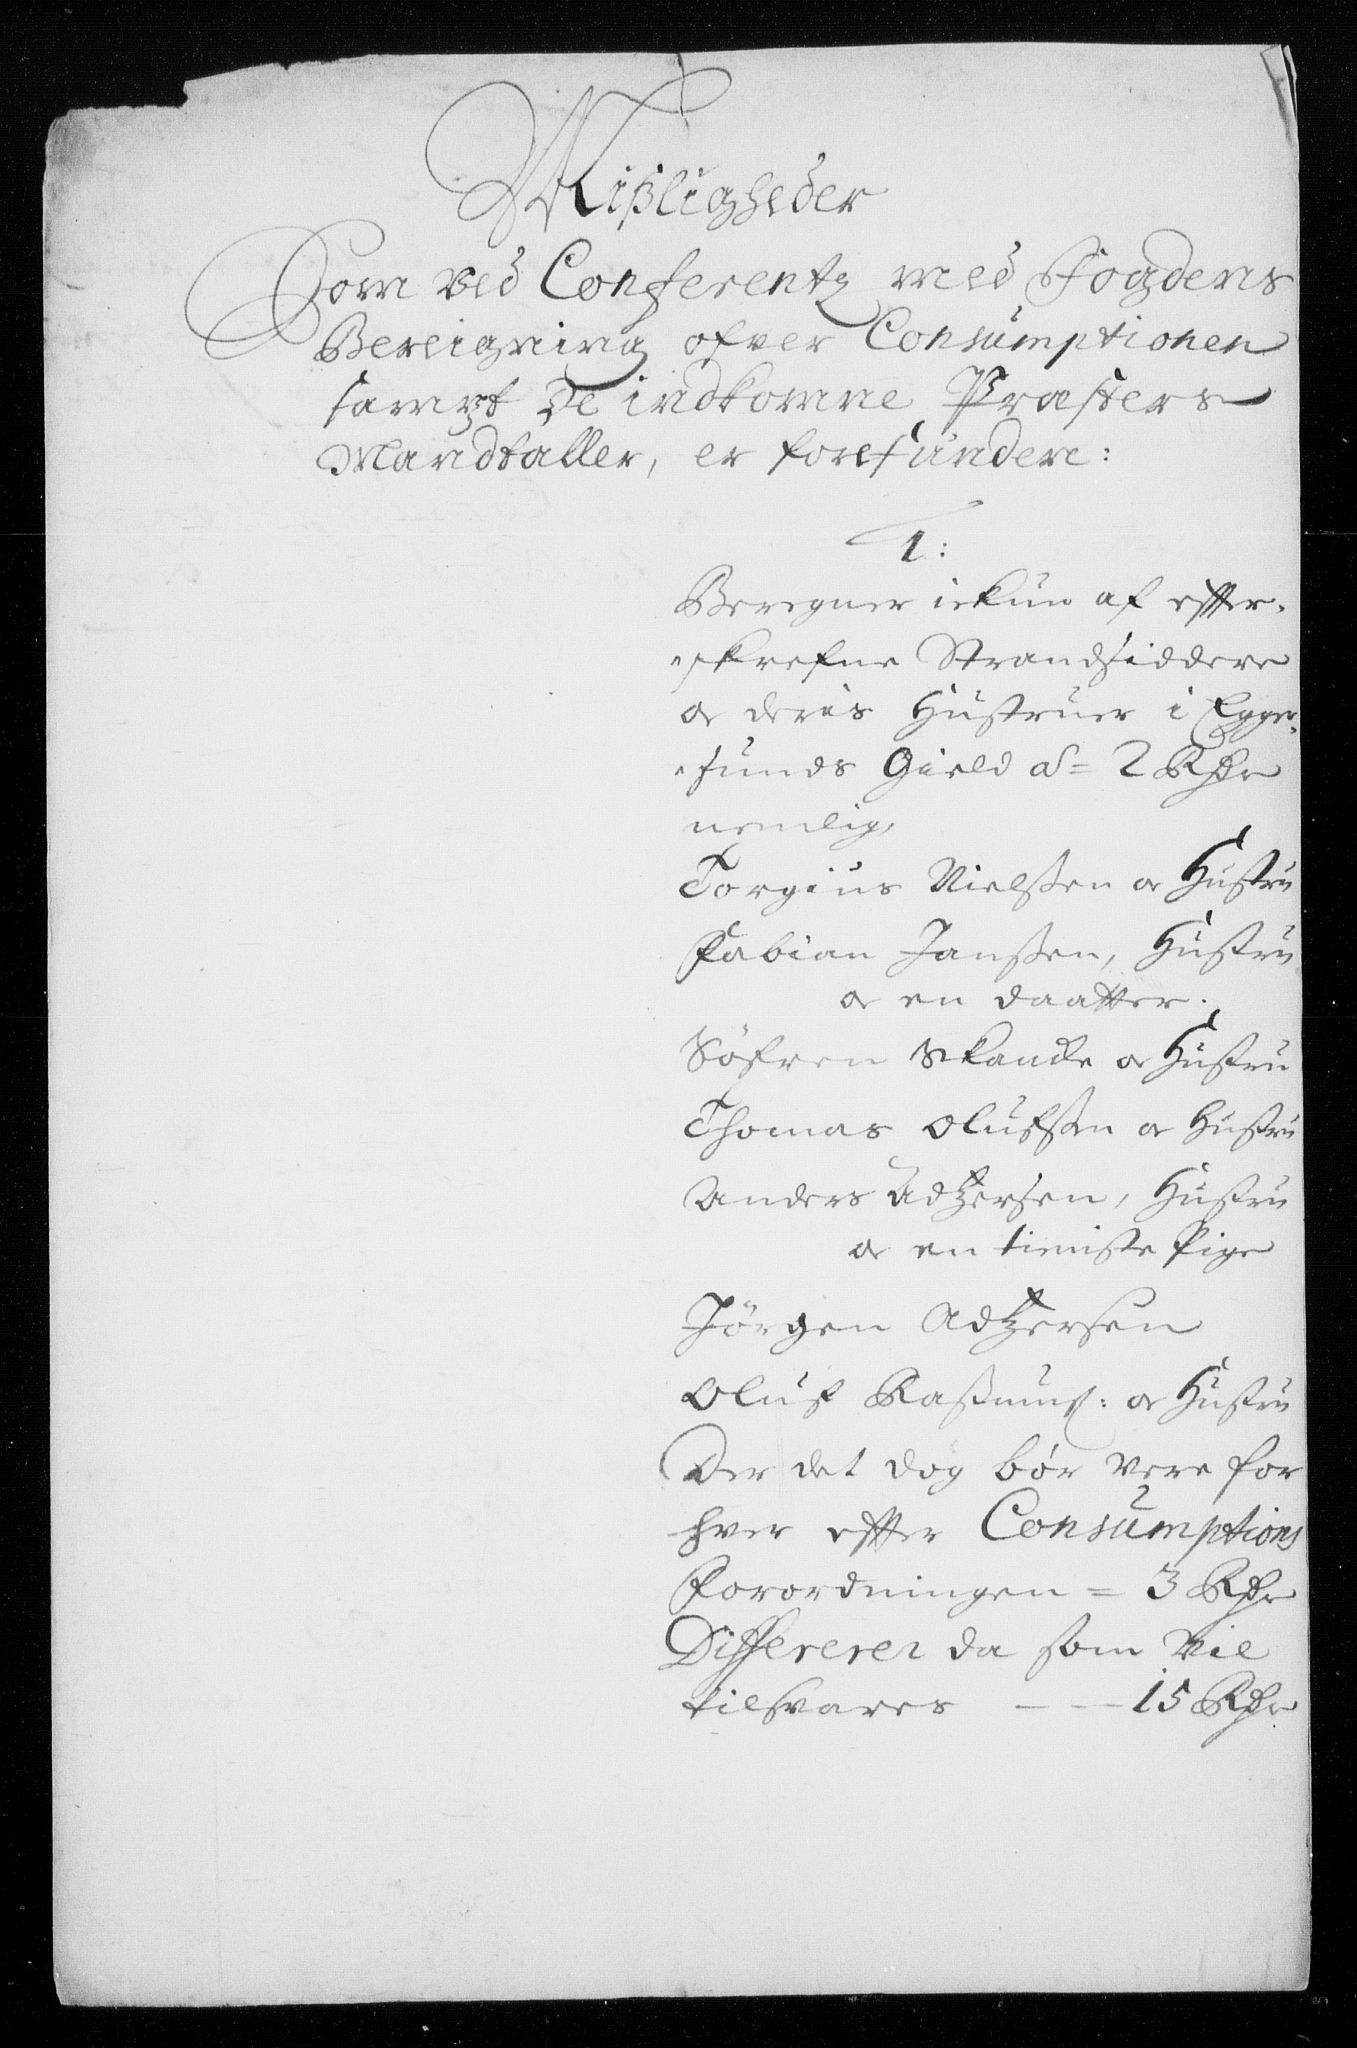 Mißligheder
Som ved Conferentz med Fogdens
Bereigning ofver Consumptionen
sampt De indkomne Præsters
Mandtaller, er forefunden:
1:
Beregner ickun af effter-
skrefne Strandsiddere
oc deris Hustruer i Egger-
sunds Gield á = 2 Rdr
nemlig,
Torgius Nielßen oc Hustru
Fabian Janßen, Hustru
oc en daatter.
Söfren Skancke oc Hustru
Thomas Olufsen oc Hustru
Anders Adzersen, Hustru
oc en tieniste Pige
Jörgen Adzersen
Oluf Raßmus: oc Hustru
Der det dog bör være for
hver effter Consumptions
Forordningen = 3 Rdr
Differerer da som vil
tilsvares — — 15 Rdr